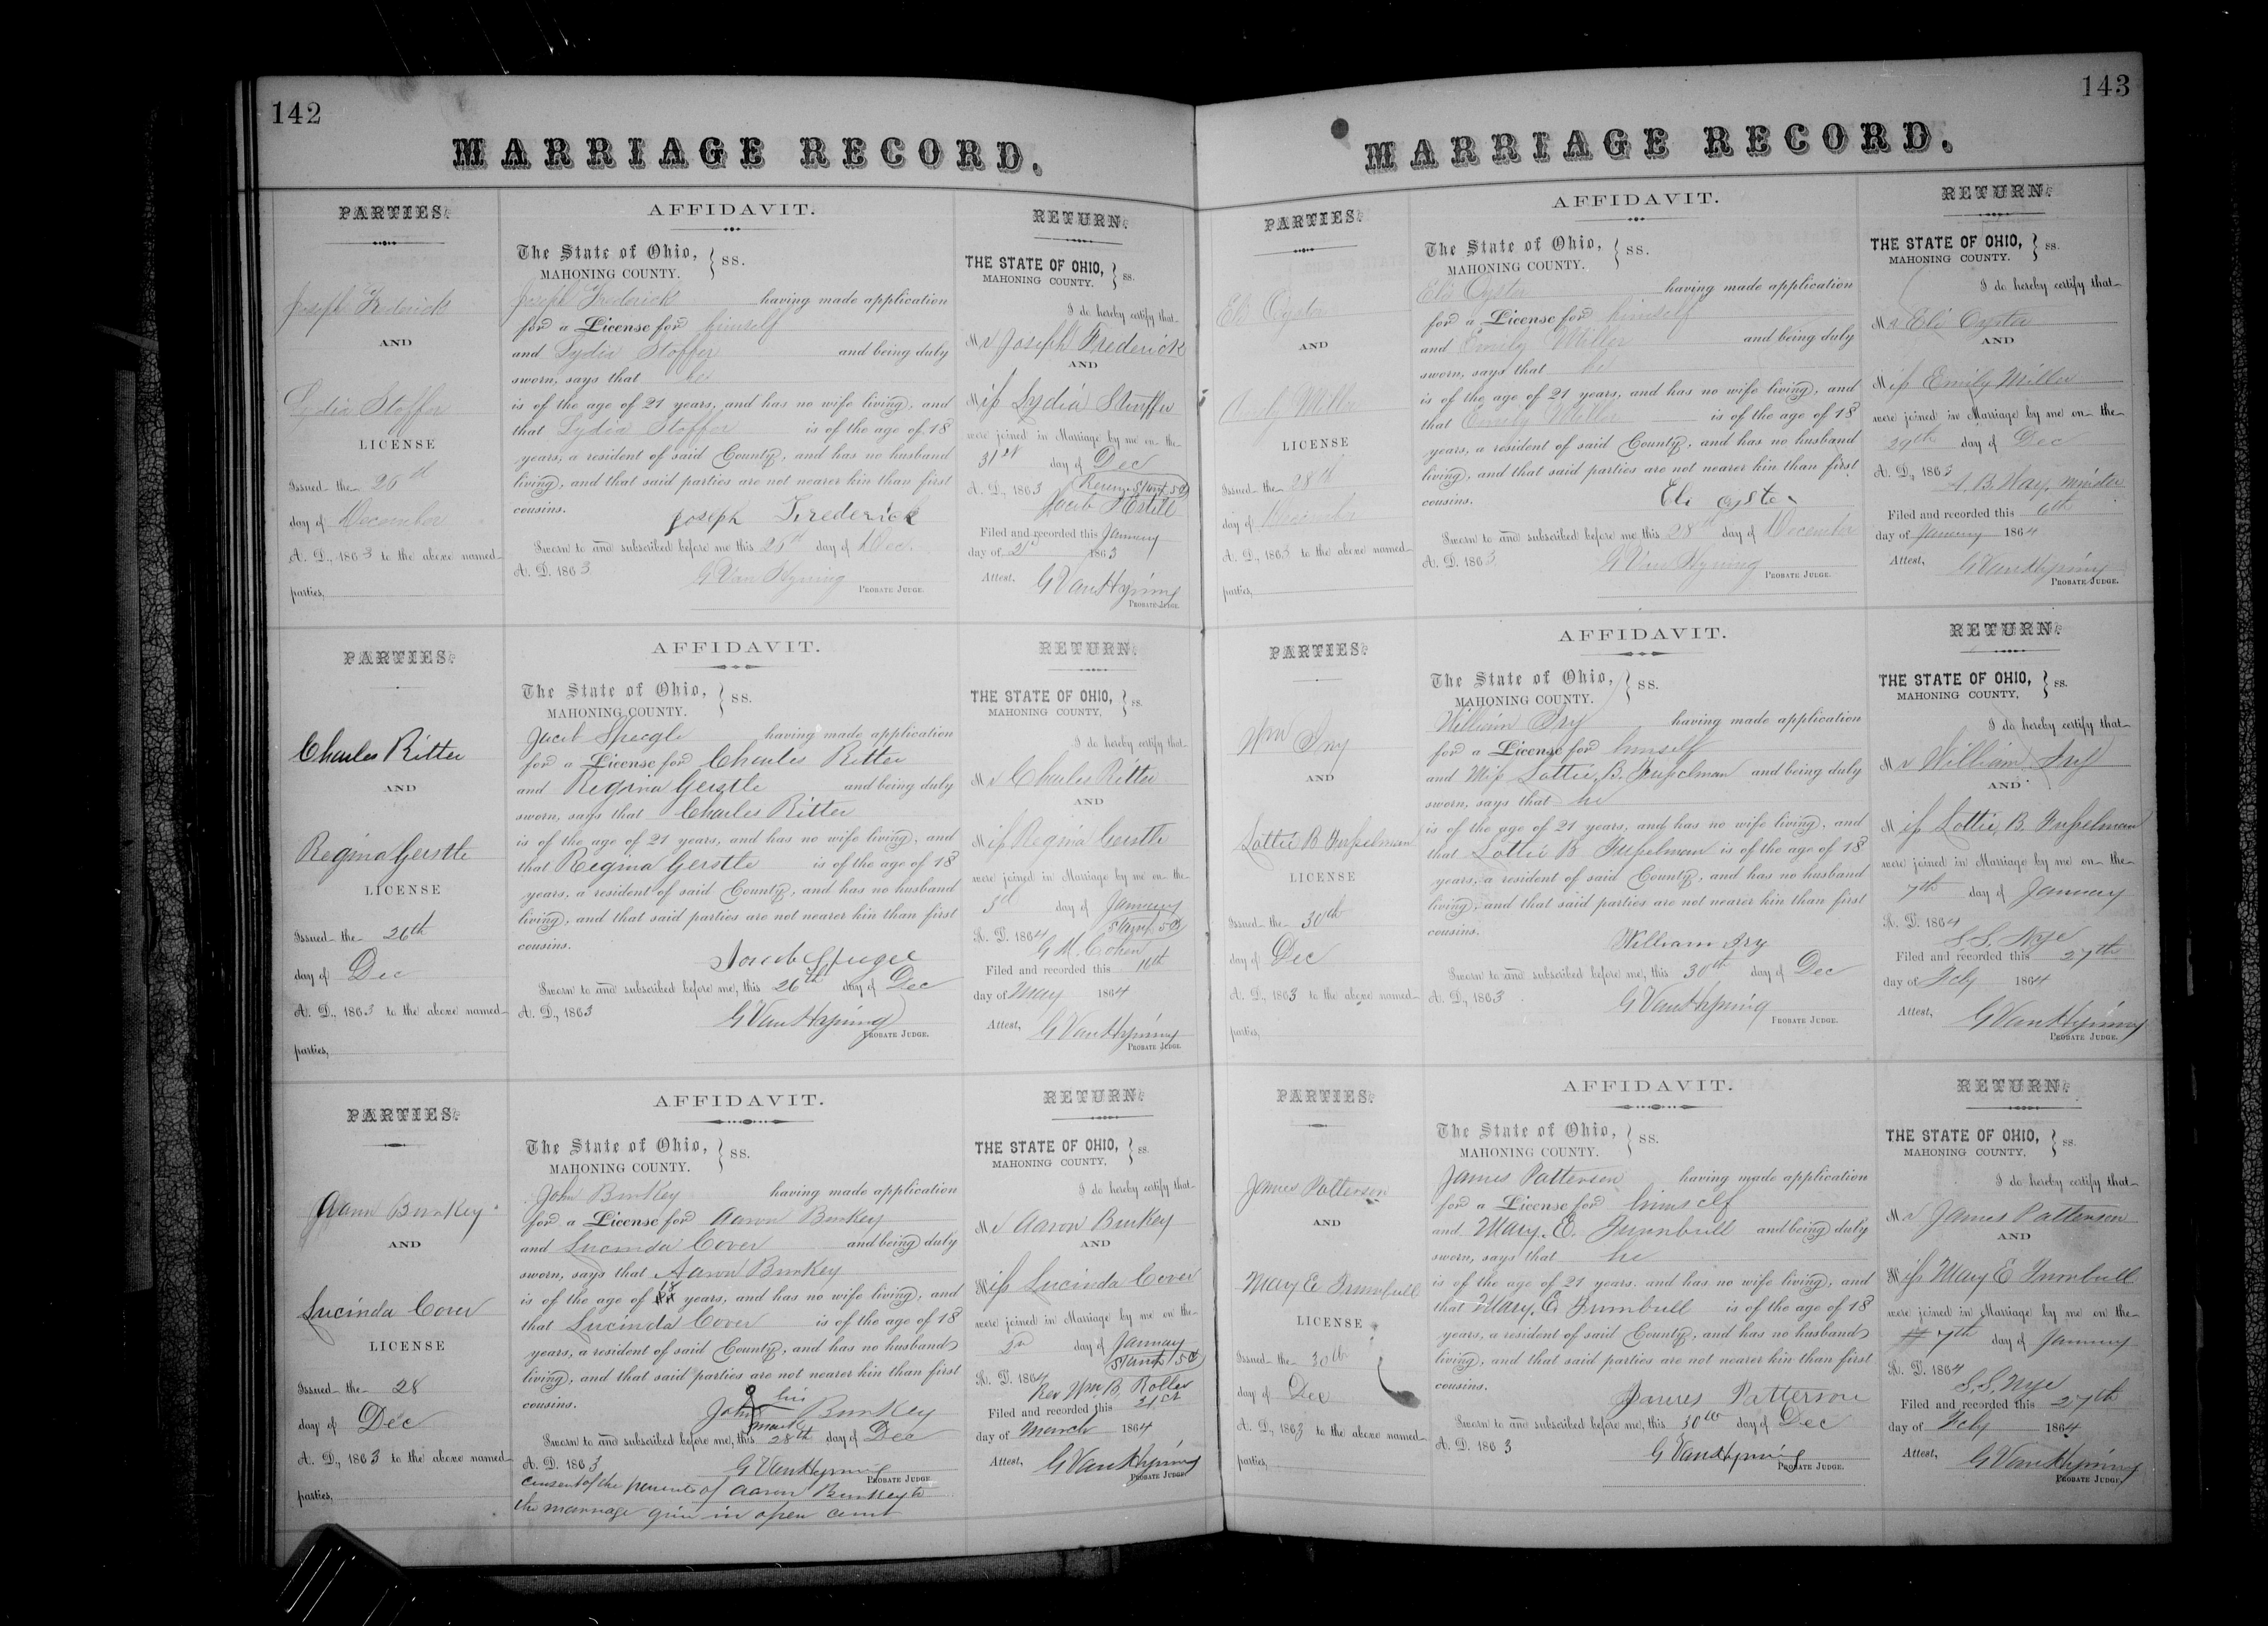 142
MARRIAGE RECORD.
PARTIES.
Joseph Frederick
AND
Lydia Stoffer
LICENSE
Issued the 26th
day of December
A. D., 1863 to the above named
parties,
AFFIDAVIT.
The State of Ohio, } SS.
MAHONING COUNTY.
Joseph Frederick having made application
for a License for himself
and Lydia Stoffer and being duly
sworn, says that he
is of the age of 21 years, and has no wife living, and
that Lydia Stoffer is of the age of 18
years, a resident of said County, and has no husband
living, and that said parties are not nearer kin than first
cousins.
Joseph Frederick
Sworn to and subscribed before me this 26th day of Dec.
A. D. 1863
G Van Hyning
PROBATE JUDGE.
RETURN.
THE STATE OF OHIO, } SS.
MAHONING COUNTY.
I do hereby certify that
Mr Joseph Frederick
AND
Miss Lydia Stauffer
were joined in Marriage by me on the
31st day of Dec
A. D., 1863 Stamp 5c
Jacob Estill
Filed and recorded this January
day of 1863
Attest, G Van Hyning
PROBATE JUDGE.
PARTIES.
Charles Ritter
AND
Regina Gerstle
LICENSE
Issued the 26th
day of Dec
A. D., 1863 to the above named
parties,
AFFIDAVIT.
The State of Ohio, } SS.
MAHONING COUNTY.
Jacob Speegle having made application
for a License for Charles Ritter
and Regina Gerstle and being duly
sworn, says that Charles Ritter
is of the age of 21 years, and has no wife living, and
that Regina Gerstle is of the age of 18
years, a resident of said County, and has no husband
living, and that said parties are not nearer kin than first
cousins.
Sworn to and subscribed before me, this 26th day of Dec
A. D., 1863
G Van Hyning
PROBATE JUDGE.
RETURN.
THE STATE OF OHIO, } SS.
MAHONING COUNTY,
I do hereby certify that
Mr Charles Ritter
AND
Miss Regina Gerstle
were joined in Marriage by me on the
3d day of January
A. D. 1864 Stamp 5cts
G. M. Cohen
Filed and recorded this 11th
day of May 1864
Attest, G Van Hyning
PROBATE JUDGE.
PARTIES.
Aaron Burkey
AND
Lucinda Cover
LICENSE
Issued the 28
day of Dec
A. D., 1863 to the above named
parties,
AFFIDAVIT.
The State of Ohio, } SS.
MAHONING COUNTY.
John Burkey having made application
for a License for Aaron Burkey
and Lucinda Cover and being duly
sworn, says that Aaron Burkey
is of the age of 18 years, and has no wife living, and
that Lucinda Cover is of the age of 18
years, a resident of said County, and has no husband
living, and that said parties are not nearer kin than first
cousins.
his
John Burkey
mark
Sworn to and subscribed before me, this 28th day of Dec
A. D. 1863
G Van Hyning
PROBATE JUDGE
consent of the parents of Aaron Burkey to
the marriage given in open court
RETURN.
THE STATE OF OHIO, } SS.
MAHONING COUNTY,
I do hereby certify that
Mr Aaron Burkey
AND
Miss Lucinda Cover
were joined in Marriage by me on the
day of January
A. D. 1864 Stamp 5c
Rev Wm B. Roller
Filed and recorded this 21st
day of March 1864
Attest, G Van Hyning
PROBATE JUDGE
143
MARRIAGE RECORD.
PARTIES.
Eli Oyster
AND
Emily Miller
LICENSE
Issued the 28th
day of December
A. D., 1863 to the above named
parties,
AFFIDAVIT.
The State of Ohio, } SS.
MAHONING COUNTY.
Eli Oyster having made application
for a License for himself
and Emily Miller and being duly
sworn, says that he
is of the age of 21 years, and has no wife living, and
that Emily Miller is of the age of 18
years, a resident of said County, and has no husband
living, and that said parties are not nearer kin than first
cousins.
Eli Oyster
Sworn to and subscribed before me this 28th day of December
A. D. 1863
G Van Hyning
PROBATE JUDGE.
RETURN.
THE STATE OF OHIO, } SS.
MAHONING COUNTY.
I do hereby certify that
Mr Eli Oyster
AND
Miss Emily Miller
were joined in Marriage by me on the
29th day of Dec
A. D., 1863
A. B. Way, minister
Filed and recorded this 6th
day of January 1864
Attest, G Van Hyning
PROBATE JUDGE.
PARTIES.
Wm Fry
AND
Lottie B Fusselman
LICENSE
Issued the 30th
day of Dec
A. D., 1863 to the above named
parties,
AFFIDAVIT.
The State of Ohio, } SS.
MAHONING COUNTY.
William Fry having made application
for a License for himself
and Miss Lottie B. Fusselman and being duly
sworn, says that he
is of the age of 21 years, and has no wife living, and
that Lottie B Fusselman is of the age of 18
years, a resident of said County, and has no husband
living, and that said parties are not nearer kin than first
cousins.
William Fry
Sworn to and subscribed before me, this 30th day of Dec
A. D., 1863
G Van Hyning
PROBATE JUDGE.
RETURN.
THE STATE OF OHIO, } SS.
MAHONING COUNTY,
I do hereby certify that
Mr William Fry
AND
Miss Lottie B. Fusselman
were joined in Marriage by me on the
7th day of January
A. D. 1864
S. S. Nye
Filed and recorded this 27th
day of Feby 1864
Attest, G Van Hyning
PROBATE JUDGE.
PARTIES.
James Patterson
AND
Mary E Turnbull
LICENSE
Issued the 30th
day of Dec
A. D., 1863 to the above named
parties,
AFFIDAVIT.
The State of Ohio, } SS.
MAHONING COUNTY.
James Patterson having made application
for a License for himself
and Mary. E. Turnbull and being duly
sworn, says that he
is of the age of 21 years, and has no wife living, and
that Mary, E. Turnbull is of the age of 18
years, a resident of said County, and has no husband
living, and that said parties are not nearer kin than first
cousins.
James Patterson
Sworn to and subscribed before me, this 30th day of Dec
A. D. 1863
G Van Hyning
PROBATE JUDGE.
RETURN.
THE STATE OF OHIO, } SS.
MAHONING COUNTY,
I do hereby certify that
Mr James Patterson
AND
Miss Mary E Turnbull
were joined in Marriage by me on the
7th day of January
A. D. 1864
S. S. Nye
Filed and recorded this 27th
day of Feby 1864
Attest, G Van Hyning
PROBATE JUDGE